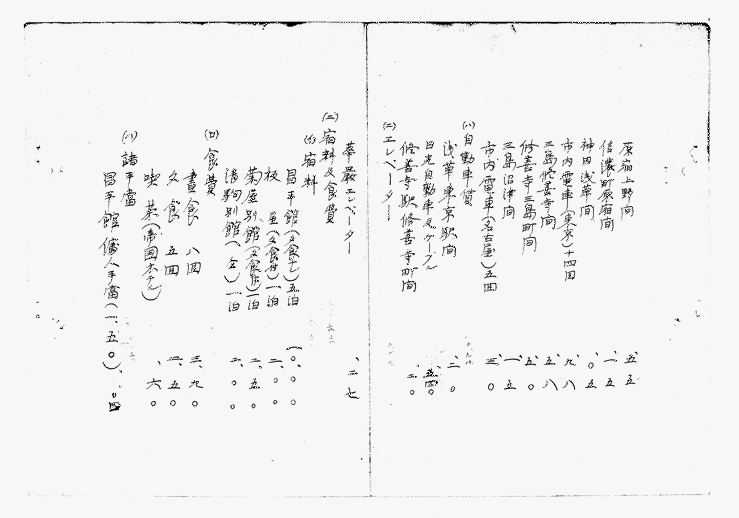 原宿上野間 五.五
信濃町原宿間 一.五
神田浅草間 .〇五
市内電車(東京)十四回 九.八
三島修善寺間 五.八
修善寺三島町間 五.〇
三島沼津間 一.五
市内電車(名古屋)五回 三.〇
(ハ)自動車賃
浅草東京駅間 二.〇
日光自動車及ケーブル
修善寺駅修善寺町間 二.〇
(ニ)エレベーター
華厳エレベーター .二七
(二)宿料及食費
(イ)宿料
昌平館(夕食七)五泊 一〇.〇〇
二.〇〇
菊屋別館 一泊 二.五〇
別館 一泊 二.〇〇
(ロ)食費
昼食 八回 三.九〇
夕食 五回 二.五〇
喫茶(帝国ホテル) .六〇
(ハ)諸手當
昌平館傭人手當(一.五〇)